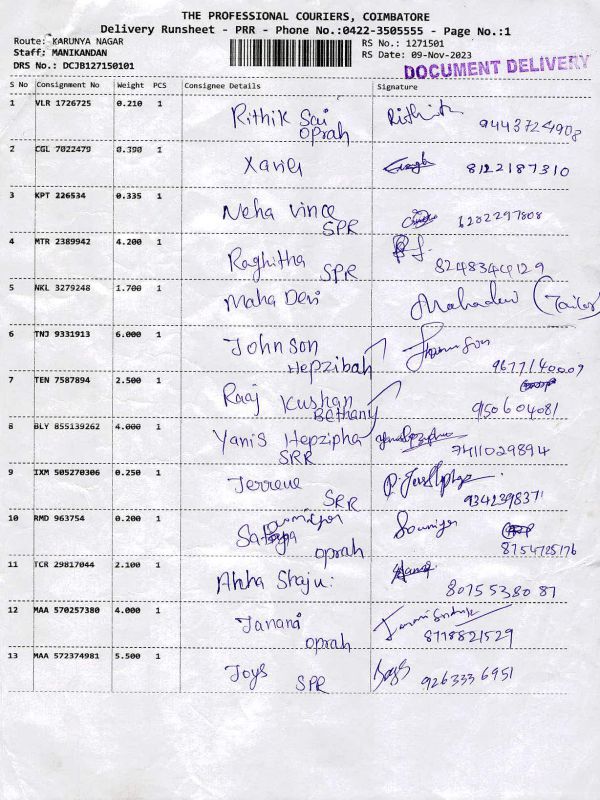 THE PROFESSIONAL COURIERS, COIMBATORE
Delivery Runsheet - PRR - Phone No.:0422-3505555 - Page No.:1
Route: KARUNYA NAGAR
Staff: MANIKANDAN
DRS No.: DCJB127150101
RS No.: 1271501
RS Date: 09-Nov-2023
DOCUMENT DELIVERY
S No Consignment No Weight PCS Consignee Details Signature
1 VLR 1726725 0.210 1 Rithik Sai Rithik
Oprah 9443724908
2 CGL 7022479 0.390 1 Xavier 8122187310
3 KPT 226534 0.335 1 Neha Vince
SPR 6282297808
4 MTR 2389942 4.200 1 Raghitha
SPR 8248344129
5 NKL 3279248 1.700 1 Maha Devi Mahadevi (Tailor)
6 TNJ 9331913 6.000 1 Johnson
Hepzibah 9677140009
7 TEN 7587894 2.500 1 Raaj Kushan
Bethany 9150604081
8 BLY 855139262 4.000 1 Yanis Hepzipha
SRR 7411029894
9 IXM 505270306 0.250 1
SRR 934239837
10 RMD 963754 0.200 1 Soumiya
oprah 8754725176
11 TCR 29817044 2.100 1 Shaju
8075538087
12 MAA 570257380 4.000 1 Janani
oprah 8778821529
13 MAA 572374981 5.500 1 Joys
SPR 9263336951